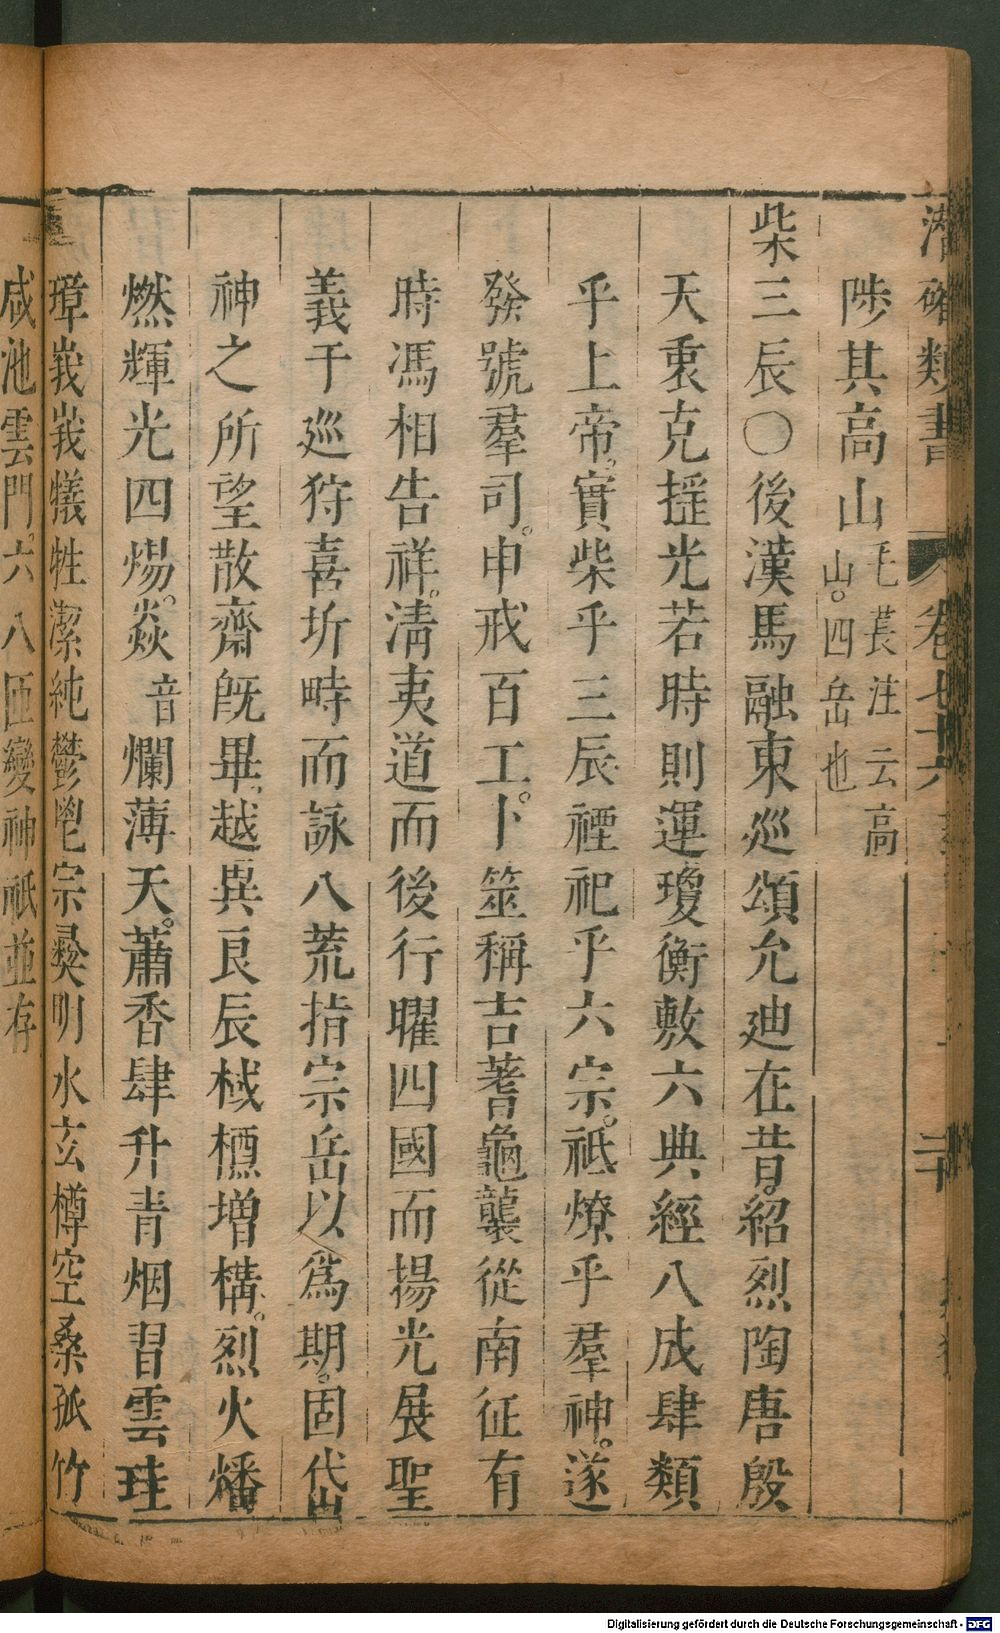 潛確類書 卷七十六
陟其高山毛萇注云高山。四岳也
柴三辰〇後漢馬融東巡頌允迪在昔紹烈陶唐殷
天衷克搖光若時則運瓊衡敷六典經八成肆類
乎上帝。實柴乎三辰禋祀乎六宗。祗燎乎羣神。遂
發號羣司。申戒百工。卜筮稱吉蓍龜襲從南征有
時馮相告祥。清夷道而後行曜四國而揚光展聖
義于巡狩喜圻畤而詠八荒指宗岳以爲期。固岱
神之所望散齋旣畢。越異良辰棫樸增構。烈火燔
燃輝光四煬。焱音爛薄天。蕭香肆升青烟習雲珪
璋峩峩犧牲潔純鬱鬯宗彝明水玄樽空桑孤竹
咸池雲門。六八匝變神祇並存
Digitalisierung gefördert durch die Deutsche Forschungsgemeinschaft - DFG